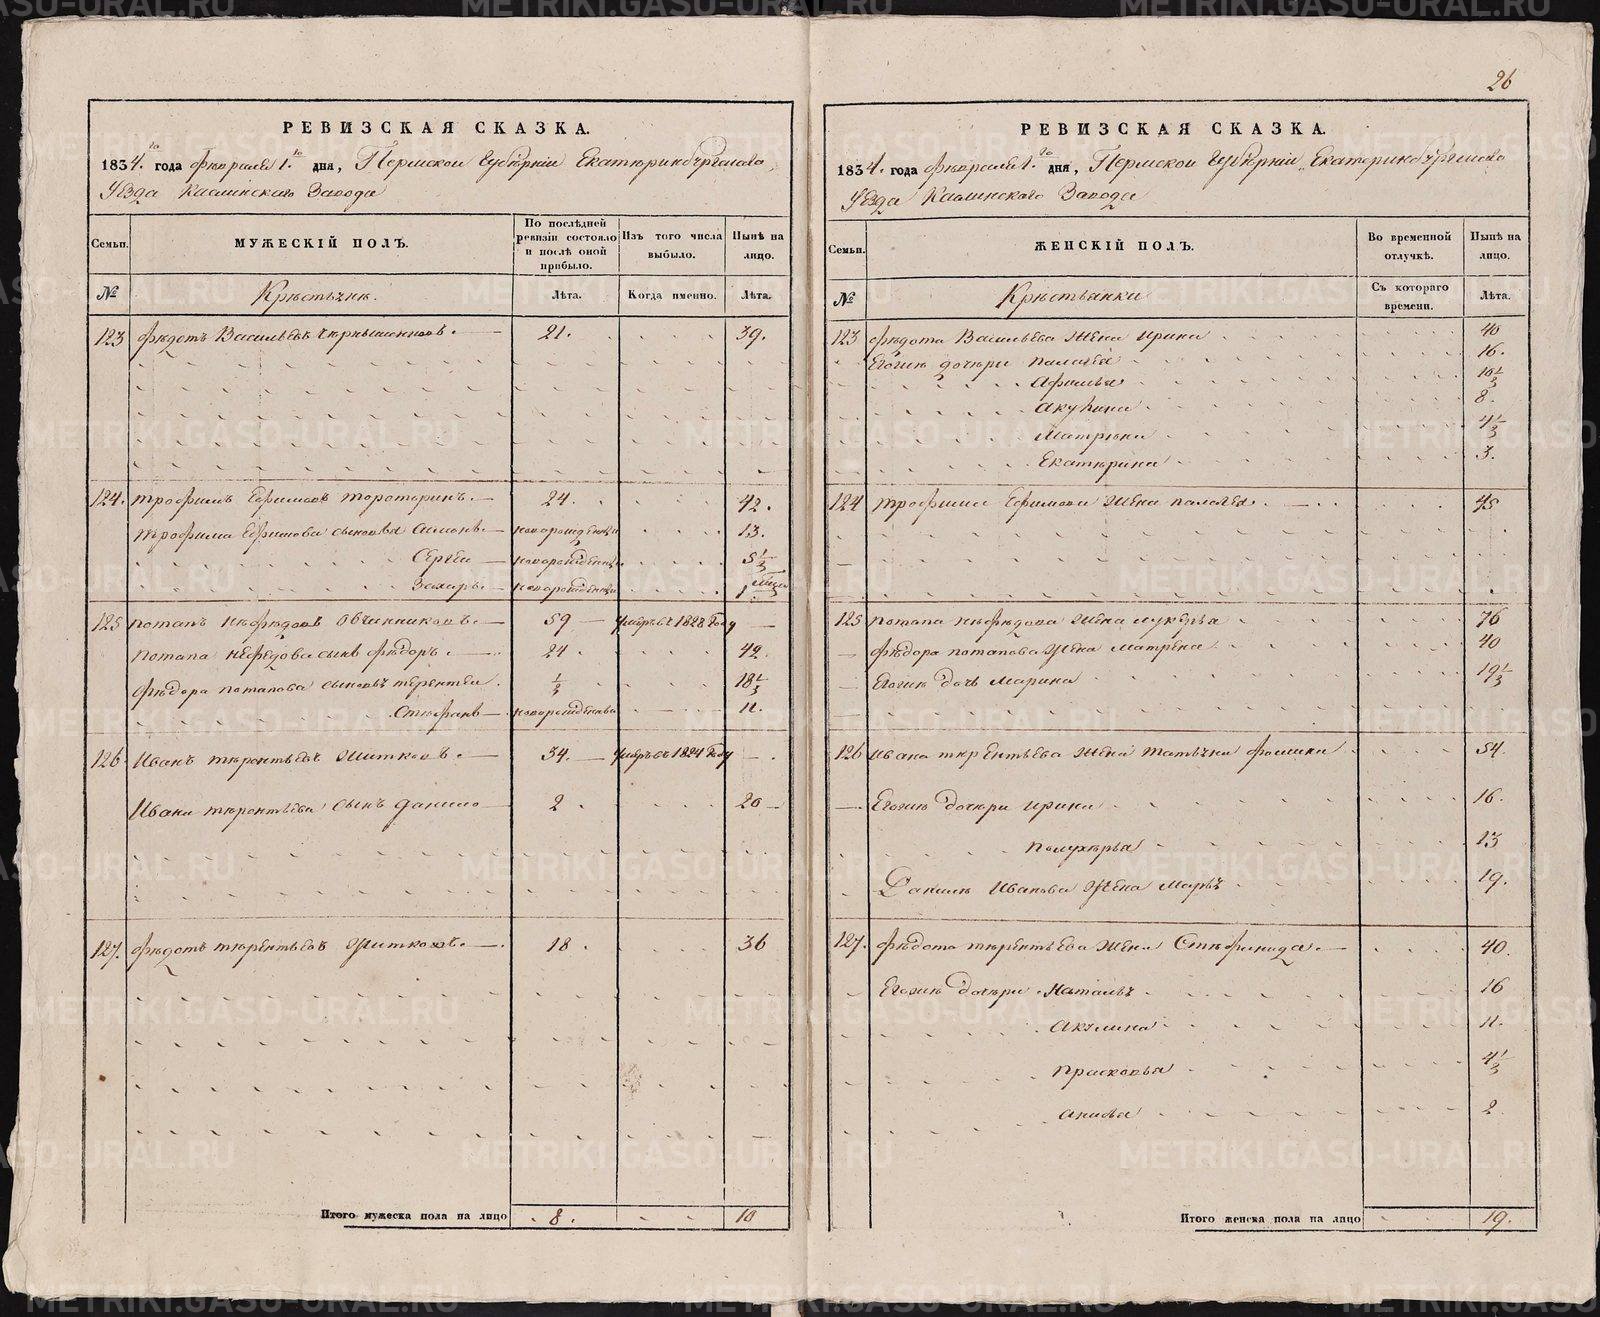 26
РЕВИЗСКАЯ СКАЗКА.
1834.го года февраля 1.го дня, Пермской Губерніи Екатеринбургскаго
Уезда Каслинскаго Завода
Семьи.
МУЖЕСКІЙ ПОЛЪ.
По послѣдней ревизіи состояло и послѣ оной прибыло.
Изъ того числа выбыло.
Нынѣ на лицо.
№
Лѣта.
Когда именно.
Лѣта.
123 Федотъ Васильевъ 21. 39.
124. Трофимъ Ефимовъ 24. 42.
Трофима Ефимова сыновья новорожденъ 13.
Сергеи новорожденъ 5 1/3
Захаръ новорожденъ 1
125 Потапъ Нефедовъ Овчинниковъ 59 1828 Году
Потапа Нефедова сынъ Федоръ 24 42.
Федора Потапова сыновья Терентеи 1/3 18 1/3
Стефанъ новорожденъ 11.
126 Иванъ Терентьевъ 34. 1824 Году
Ивана Терентьева сынъ Данило 2 20
127. Федотъ Терентьевъ 18 36
Итого мужеска пола на лицо 8. 10
РЕВИЗСКАЯ СКАЗКА.
1834. года февраля 1.го дня, Пермской Губерніи Екатеринбургскаго
Уезда Каслинскаго Завода
Семьи.
ЖЕНСКІЙ ПОЛЪ.
Во временной отлучкѣ.
Нынѣ на лицо.
№
Крестьянки
Съ котораго времени.
Лѣта.
123 Федота Васильева жена Ирина 40
Егоже дочери Палагея 16.
Афимья 10 1/3
Акулина 8.
Матрена 4 1/3
Екатерина 3.
124 Трофима Ефимова жена Палагея 45
125 Потапа Нефедова жена Лукерья 76
Федора Потапова жена Матрена 40
Егоже дочь Марина 19 1/3
126 Ивана Терентьева жена Татьяна 54.
Егоже дочери Ирина 16.
13
Данила Иванова жена Марья 19.
127. Федота Терентьева жена Стефанида 40.
Егоже дочери Наталья 16
Акулина 11.
Прасковья 4 1/3
2
Итого женска пола на лицо 19.
METRIKI.GASO-URAL.RU